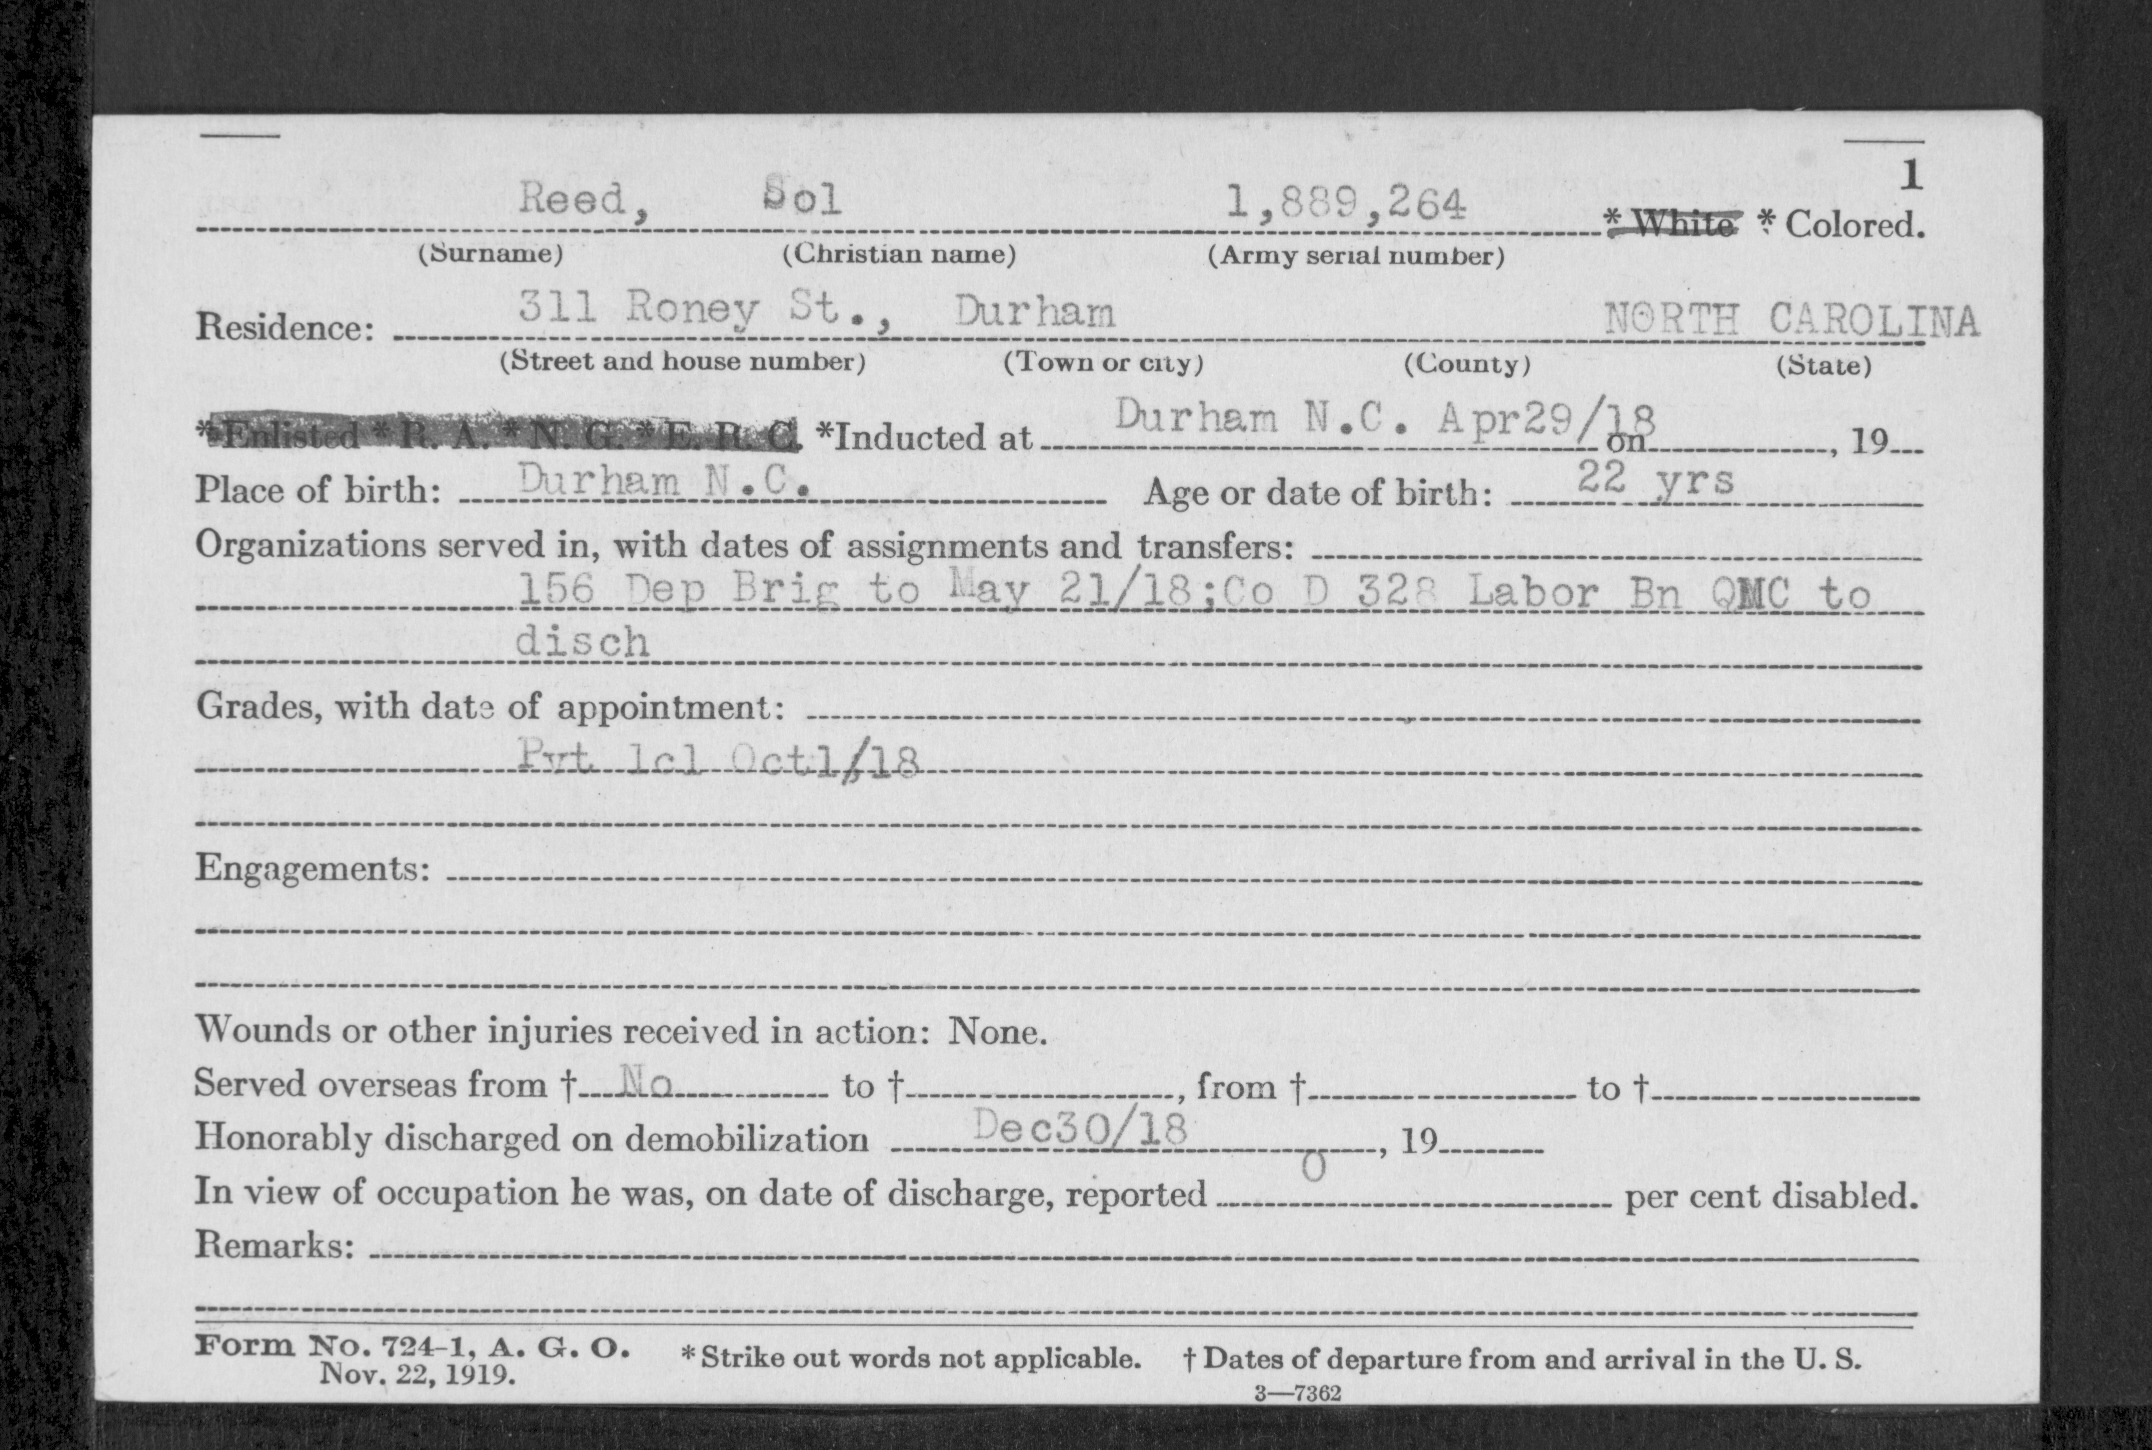 1
Reed, Sol 1,889,264 * White * Colored.
(Surname) (Christian name) (Army serial number)
Residence: 311 Roney St., Durham NORTH CAROLINA
(Street and house number) (Town or city) (County) (State)
*Enlisted * R. A. * N. G. * E. R. C. *Inducted at Durham N.C. Apr29/18 on , 19
Place of birth: Durham N.C. Age or date of birth: 22 yrs
Organizations served in, with dates of assignments and transfers:
156 Dep Brig to May 21/18;Co D 328 Labor Bn QMC to
disch
Grades, with date of appointment:
Pvt 1cl Oct1/18
Engagements:
Wounds or other injuries received in action: None.
Served overseas from † No to † , from † to †
Honorably discharged on demobilization Dec30/18 , 19
In view of occupation he was, on date of discharge, reported 0 per cent disabled.
Remarks:
Form No. 724-1, A. G. O. *Strike out words not applicable. † Dates of departure from and arrival in the U. S.
Nov. 22, 1919.
3—7362